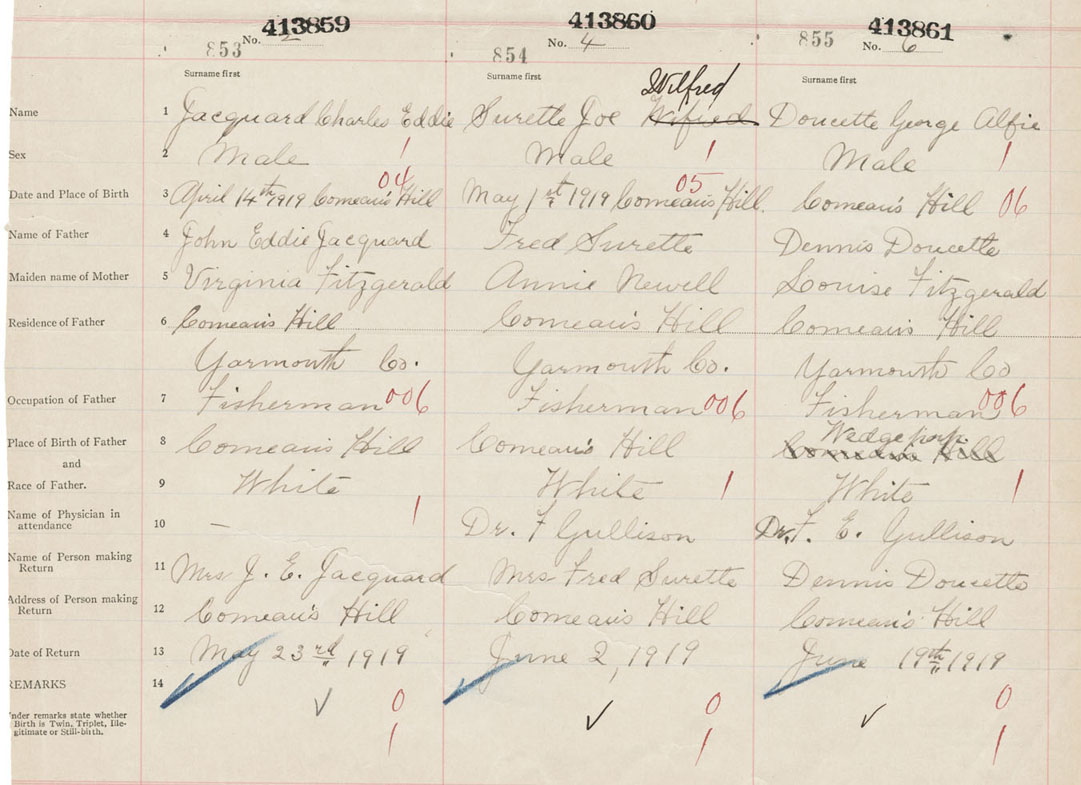 413859 413860 413861
853 No. 2 854 No. 4 855 No. 6
Surname first Surname first Surname first
Wilfred
Name 1 Jacquard Charles Eddie Surette Joe Wifred Doucette George Alfie
Sex 2 Male 1 Male 1 Male 1
04 05
Date and Place of Birth 3 April 14th 1919 Comeau's Hill May 1st 1919 Comeau's Hill. Comeau's Hill 06
Name of Father 4 John Eddie Jacquard Fred Surette Dennis Doucette
Maiden name of Mother 5 Virginia Fitzgerald Annie Newell Louise Fitzgerald
Residence of Father 6 Comeau's Hill Comeau's Hill Comeau's Hill
Yarmouth Co. Yarmouth Co. Yarmouth Co
Occupation of Father 7 Fisherman 006 Fisherman 006 Fisherman 006
Wedgeport
Place of Birth of Father 8 Comeau's Hill Comeau's Hill Comeau's Hill
and
Race of Father. 9 White White 1 White 1
1
Name of Physician in
attendance 10 – Dr. F Gullison Dr. F. E. Gullison
Name of Person making
Return 11 Mrs J. E. Jacquard Mrs Fred Surette Dennis Doucette
Address of Person making
Return 12 Comeau's Hill Comeau's Hill Comeau's Hill
Date of Return 13 May 23rd 1919 June 2, 1919 June 19th 1919
REMARKS 14
✓ 0 ✓ 0 ✓ 0
Under remarks state whether
Birth is Twin, Triplet, Ille-
gitimate or Still-birth.
1 1 1